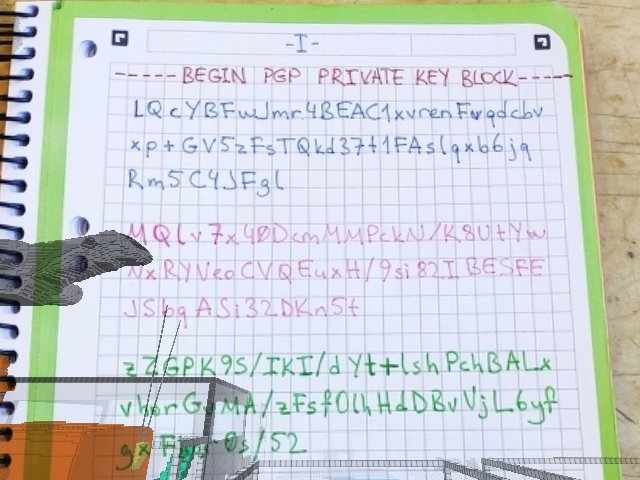 -I-
-----BEGIN PGP PRIVATE KEY BLOCK-----
LQcYBFwJmr4BEAC1xvrenFwqdcbv
xp+GV5zFsTQkd37t1FAslqxb6jq
Rm5C4JFgl
MQlv7x40DcmMMPckN/K8UtYw
NxRYVeoCVQEuxH/9si82IBESFE
JSbqASi32DKn5t
zZGPK9S/IKI/dYt+lshPchBALx
vhorGvMA/zFsfOlhHdDBvVjL6yf